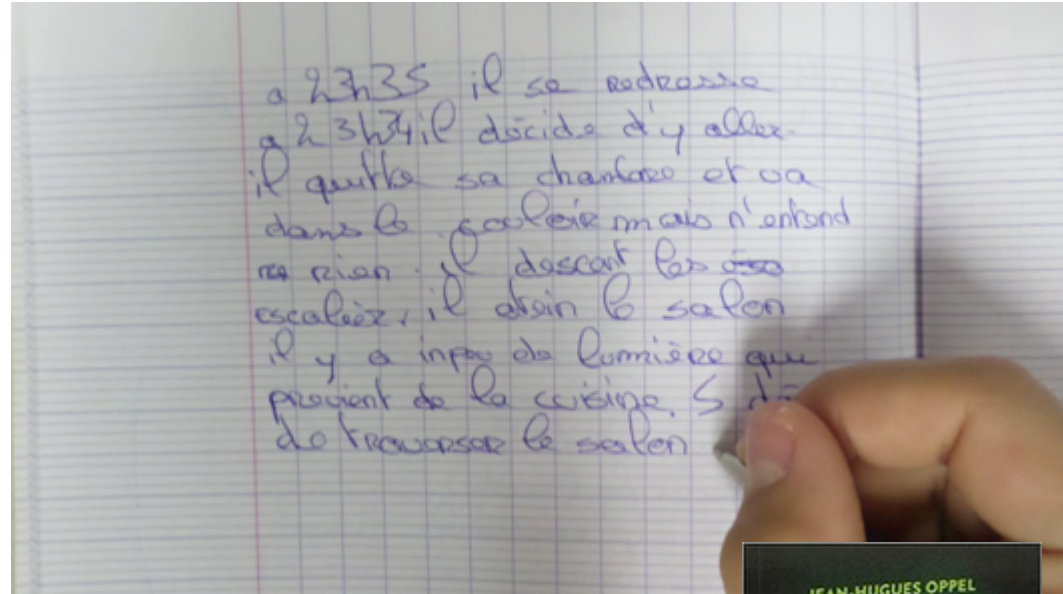 a 23h35 il se redresse
a 23h34 il décide d'y aller.
il quitte sa chambre et va
dans le couloir mais n'entend
rien. il descent les
escalièr, il atein le salon
il y a inpeu de lumière que
provient de la cuisine. S
de traverser le salon
JEAN-HUGUES OPPEL